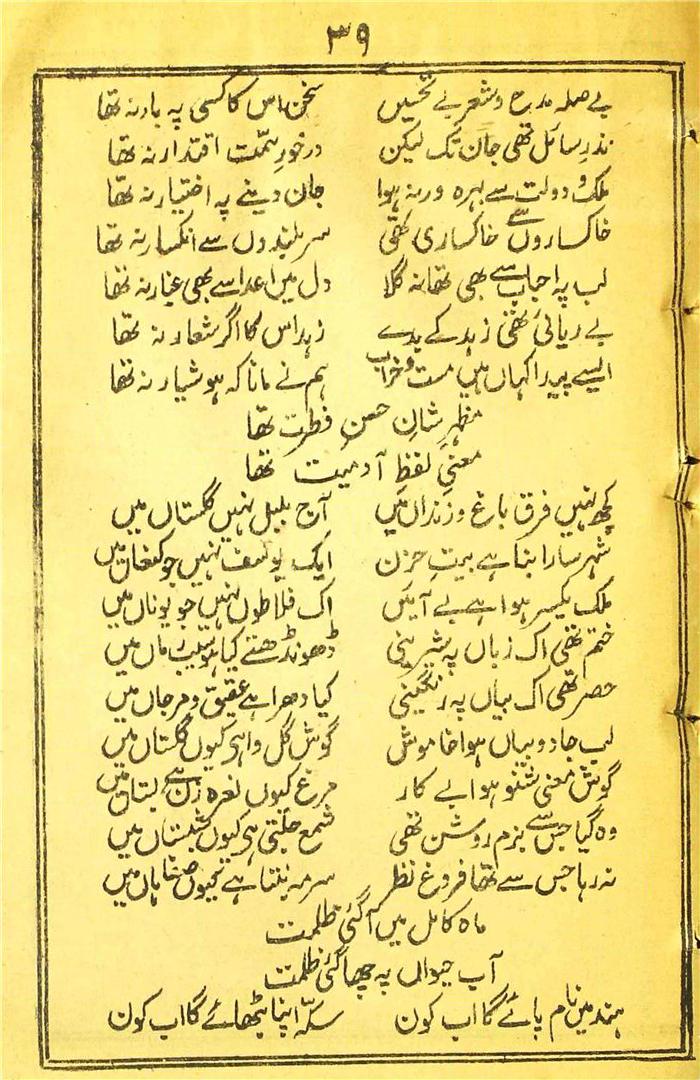 ۳۹
بے صلہ مدح و شعر بے تحسیں سخن اس کا کسی پہ بار نہ تھا
نذر سائل تھی جان تک لیکن درخور ہمّت اقتدار نہ تھا
ملک و دولت سے بہرہ ور نہ ہوا جان دینے پہ اختیار نہ تھا
خاکساروں سے خاکساری تھی سر بلندوں سے انکسار نہ تھا
لب پہ احباب سے بھی تھا نہ گلا دل میں اعدا سے بھی غبار نہ تھا
بے ریائی تھی زہد کے بدلے زہد اس کا اگر شعار نہ تھا
ایسے پیدا کہاں ہیں مست و خراب ہم نے مانا کہ ہوشیار نہ تھا
مظہر شانِ حسنِ فطرت تھا
معنیِ لفظِ آدمیت تھا
کچھ نہیں فرق باغ و زنداں میں آج بلبل نہیں گلستاں میں
شہر سارا بنا ہے بیتِ حزن ایک یوسف نہیں جو کنعاں میں
ملک یکسر ہوا ہے بے آئیں اک فلاطوں نہیں جو یوناں میں
ختم تھی اک زباں پہ شیرینی ڈھونڈھتے کیا ہو سیب رماں میں
حصر تھی اک بیاں پہ رنگینی کیا دھرا ہے عقیق و مرجاں میں
لب جادو بیاں ہوا خاموش گوش گل وا ہی کیوں گلستاں میں
گوش معنی شنو ہوا بے کار مرغ کیوں نعرہ زن ہے بستاں میں
وہ گیا جس سے بزم روشن تھی شمع جلتی ہی کیوں شبستاں میں
نہ رہا جس سے تھا فروغ نظر سرمہ بنتا ہے کیوں صفاہاں میں
ماہ کامل میں آگئی ظلمت
آب حیواں پہ چھا گئی ظلمت
ہند میں نام پائے گا اب کون سکّہ اپنا بٹھائے گا اب کون